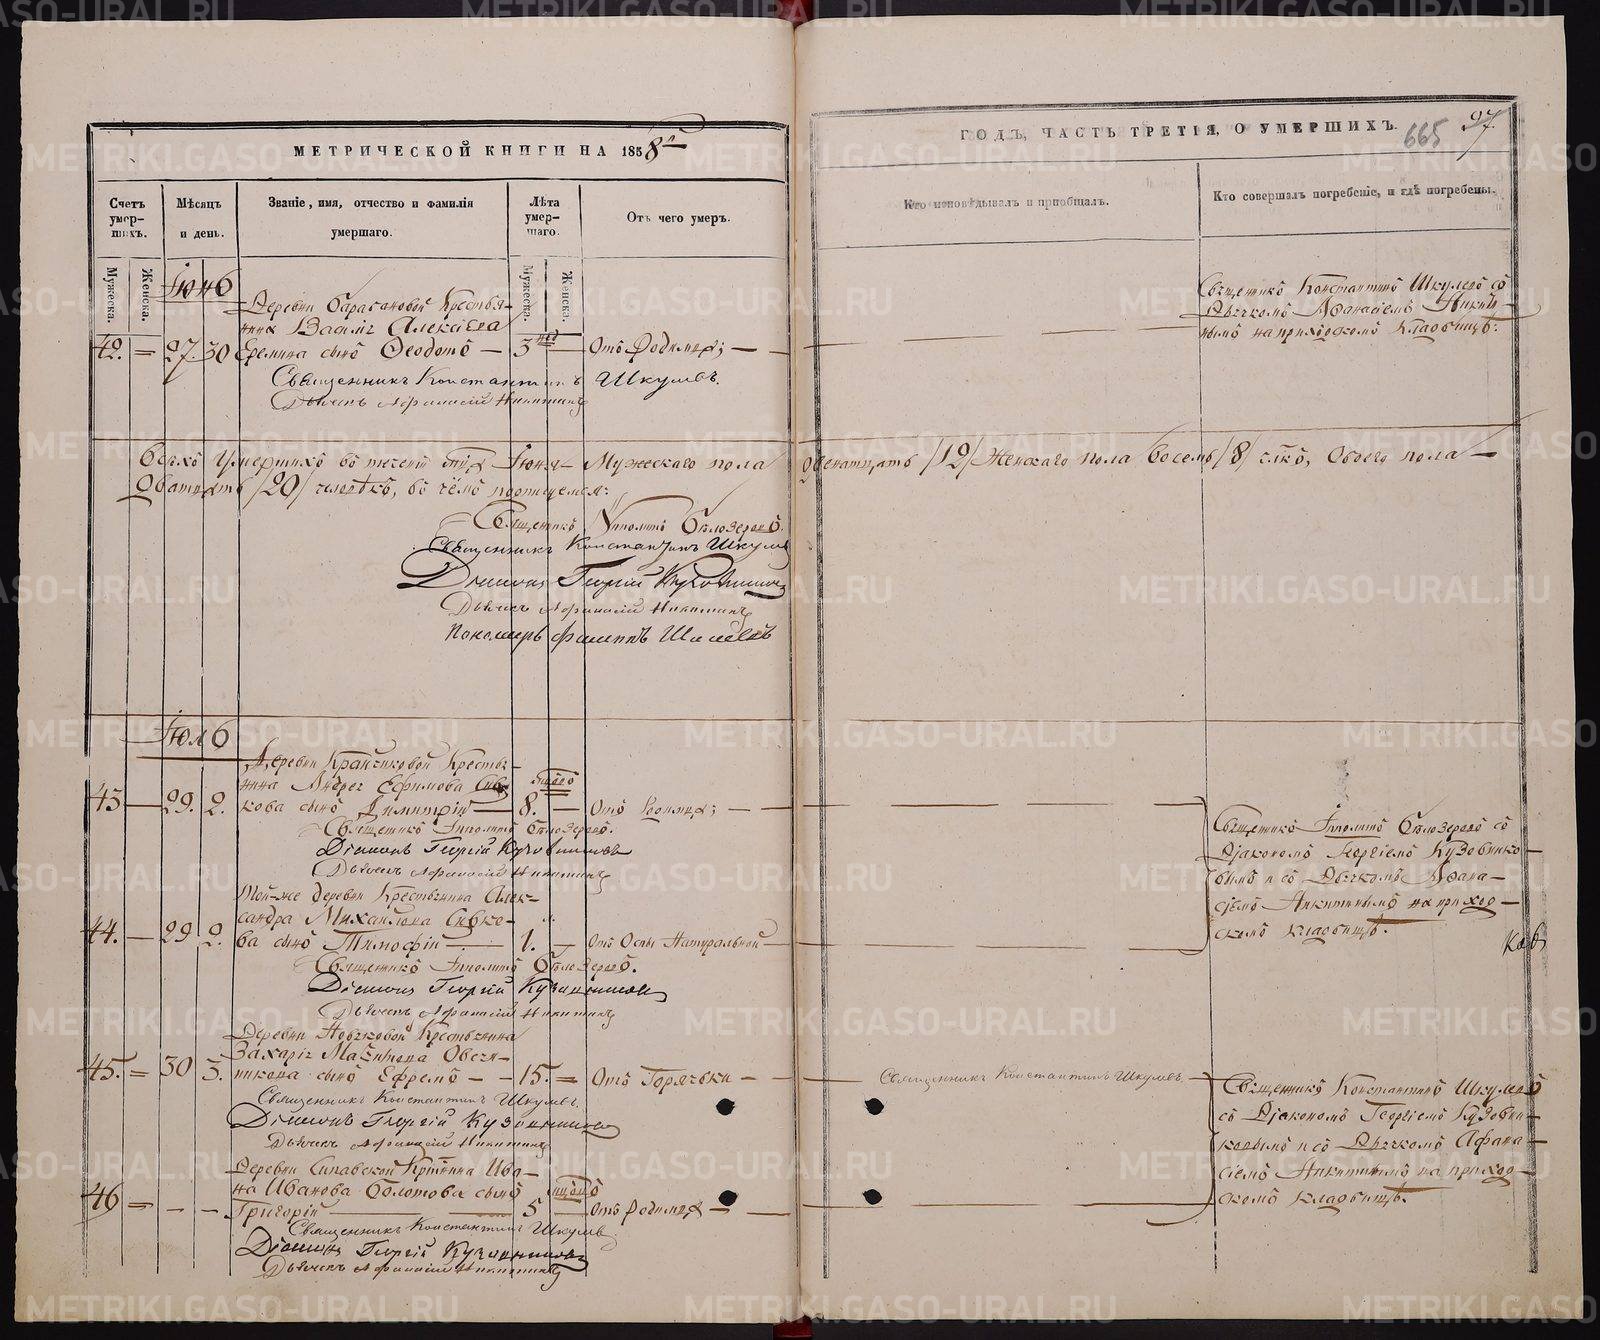 МЕТРИЧЕСКОЙ КНИГИ НА 1858й
ГОДЪ, ЧАСТЬ ТРЕТІЯ, О УМЕРШИХЪ.
665
97.
Счетъ умер-шихъ.
Мѣсяцъ и день.
Званіе, имя, отчество и фамилія умершаго.
Лѣта умер-шаго.
Отъ чего умеръ.
Кто исповѣдывалъ и пріобщалъ.
Кто совершалъ погребеніе, и гдѣ погребены.
Мужеска.
Женска.
Мужеска.
Женска.
Іюнь
Деревни Барабановой Крестья-
нина Василія Алексѣева
42. 27. 30 Еремина сынъ Ѳеодотъ 3 Отъ Родимца;
Священникъ Константинъ Шкулевъ.
Дьячекъ Афанасій Никитинъ
Священникъ Константинъ Шкулевъ съ
Дьячкомъ Афанасіемъ Никити-
нымъ на приходскомъ Кладбищѣ.
Всѣхъ Умершихъ въ теченіи Іюня Мужескаго пола двенатцать /12/ Женскаго пола Восемь /8/ Обоего пола
Дватцать /20/ человѣкъ, въ чемъ подписуемся:
Священникъ Ипполитъ Бѣлозеровъ.
Священникъ Константинъ Шкулевъ
Діаконъ Георгій
Дьячекъ Афанасій Никитинъ
Пономарь Филиппъ
Іюль
Деревни Крайчиковой Крестья-
нина Андрея Ефимова Сив-
43 29. 2. кова сынъ Димитрій 8. Отъ Родимца;
Священникъ Ипполитъ Бѣлозеровъ.
Діаконъ Георгій Кузовниковъ
Дьячекъ Афанасій Никитинъ
Той-же деревни Крестьянина Алек-
сандра Михайлова Сивко-
44. 29 2. ва сынъ Тимофей 1. Отъ Оспы Натуральной
Священникъ Ипполитъ Бѣлозеровъ.
Діаконъ Георгій Кузовниковъ
Дьячекъ Афанасій Никитинъ
Священникъ Ипполитъ Бѣлозеровъ съ
Діакономъ Георгіемъ Кузовнико-
вымъ и съ Дьячкомъ Афана-
сіемъ Никитинымъ на приход-
скомъ кладбищѣ.
Деревни Крестьянина
Захарія Овсян-
45. 30 3. никова сынъ Ефремъ 15. Отъ Горячки
Священникъ Константинъ Шкулевъ.
Священникъ Константинъ Шкулевъ.
Діаконъ Георгій Кузовниковъ
Дьячекъ Афанасій Никитинъ
Священникъ Константинъ Шкулевъ
съ Діакономъ Георгіемъ Кузовни-
ковымъ и съ Дьячкомъ Афана-
сіемъ Никитинымъ на приход-
скомъ кладбищѣ.
Деревни Ива-
на Иванова Болотова сынъ
46 Григорій 5 Отъ Родимца
Священникъ Константинъ Шкулевъ
Діаконъ Георгій Кузовниковъ
Дьячекъ Афанасій Никитинъ
METRIKI.GASO-URAL.RU